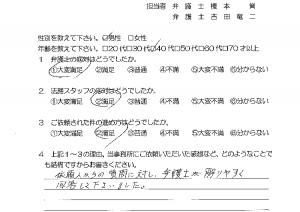 担当者 弁護士榎本 賞
弁護士吉田竜二
性別を教えて下さい。□男性 □女性
年齢を教えて下さい。□20代□30代□40代□50代□60代□70才以上
1 弁護士の応対はどうでしたか。
①大変満足 ②満足 ③普通 ④不満 ⑤大変不満 ⑥分からない
2 法務スタッフの応対はどうでしたか。
①大変満足 ②満足 ③普通 ④不満 ⑤大変不満 ⑥分からない
3 ご依頼された件の進め方はどうでしたか。
①大変満足 ②満足 ③普通 ④不満 ⑤大変不満 ⑥分からない
4 上記1~3の理由、当事務所にご依頼いただいた感想など、どのようなことで
も結構ですからお書きください。
依頼人からの質問に対し、弁護士が解りやすく
回答して下さいました。